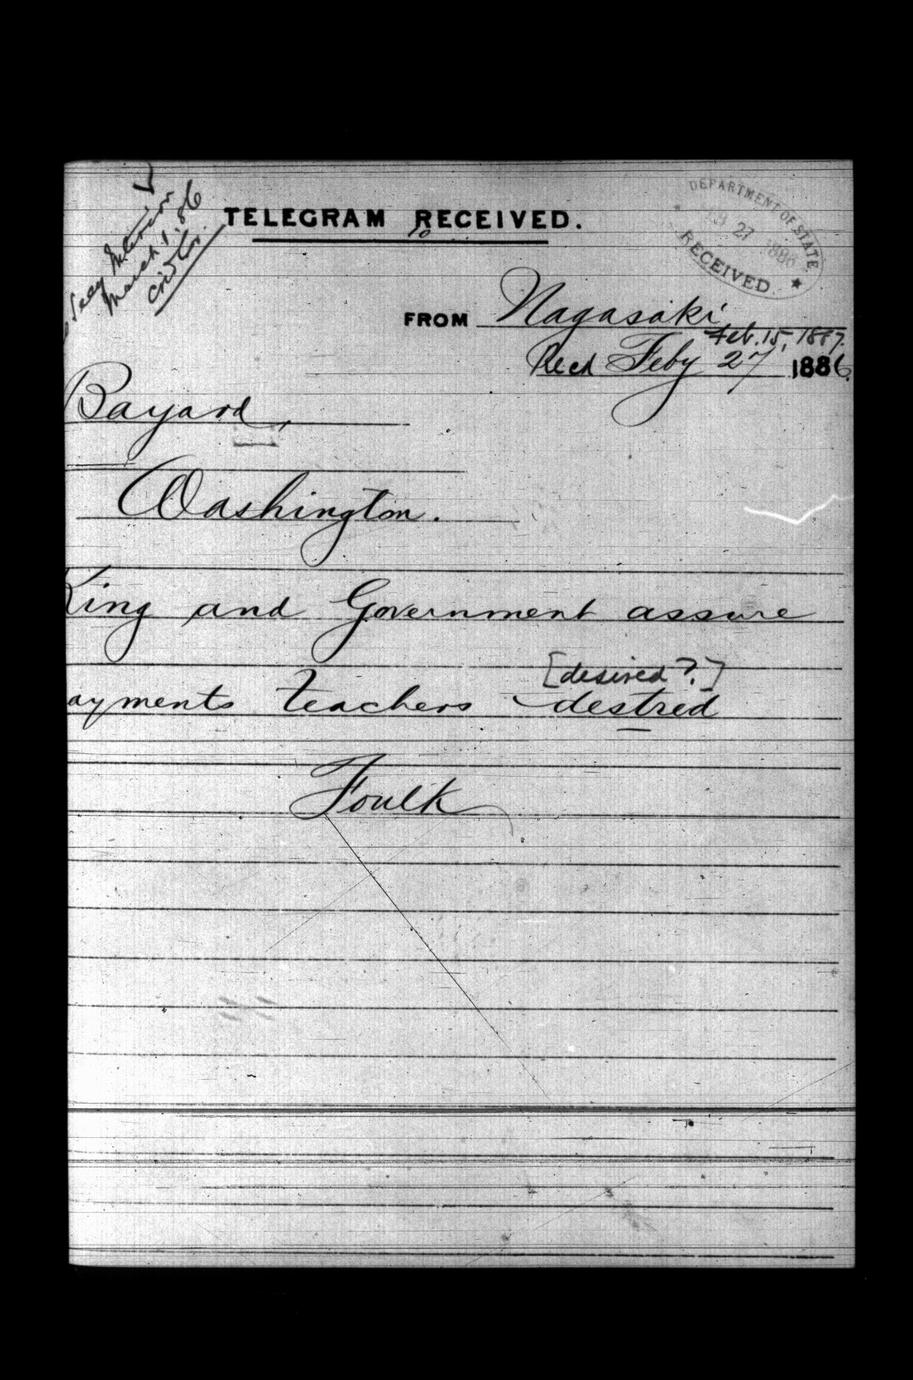 Secy Interior
March 1, 86
TELEGRAM RECEIVED.
DEPARTMENT OF STATE
27 1886
RECEIVED
FROM Nagasaki
Feb. 15, 1887.
Recd Feby 27 1886.
Bayard,
Washington.
King and Government assure
ayments teachers [desired?]
destred
Foulk